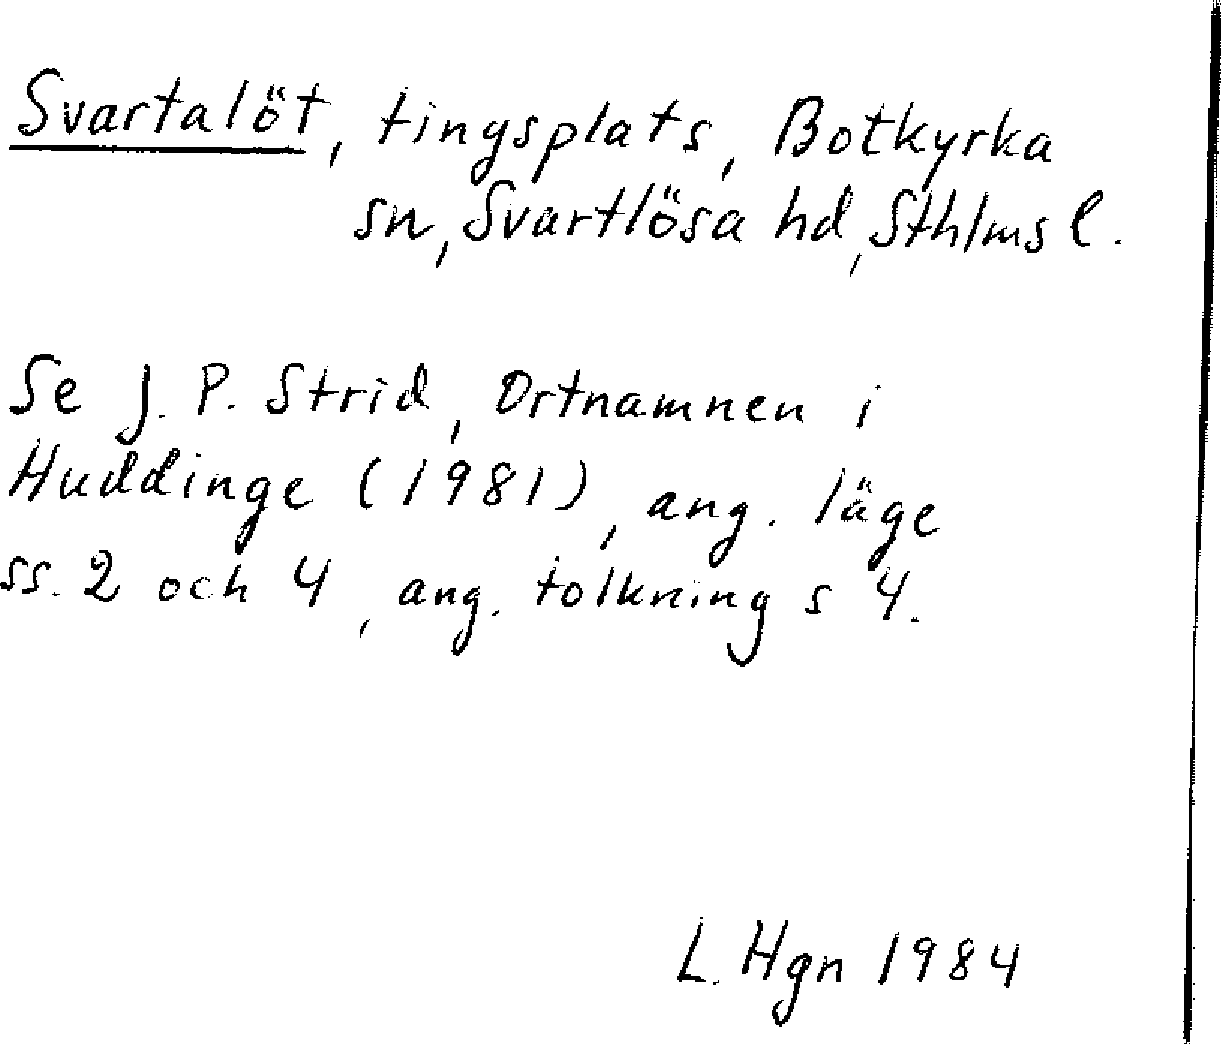 Svartalöt, tingsplats, Botkyrka
sn, Svartlösa hd, Sthlms l.
Se J. P. Strid, Ortnamnen i
Huddinge (1981), ang. läge
ss. 2 och 4, ang. tolkning s 4.
L. Hgn 1984